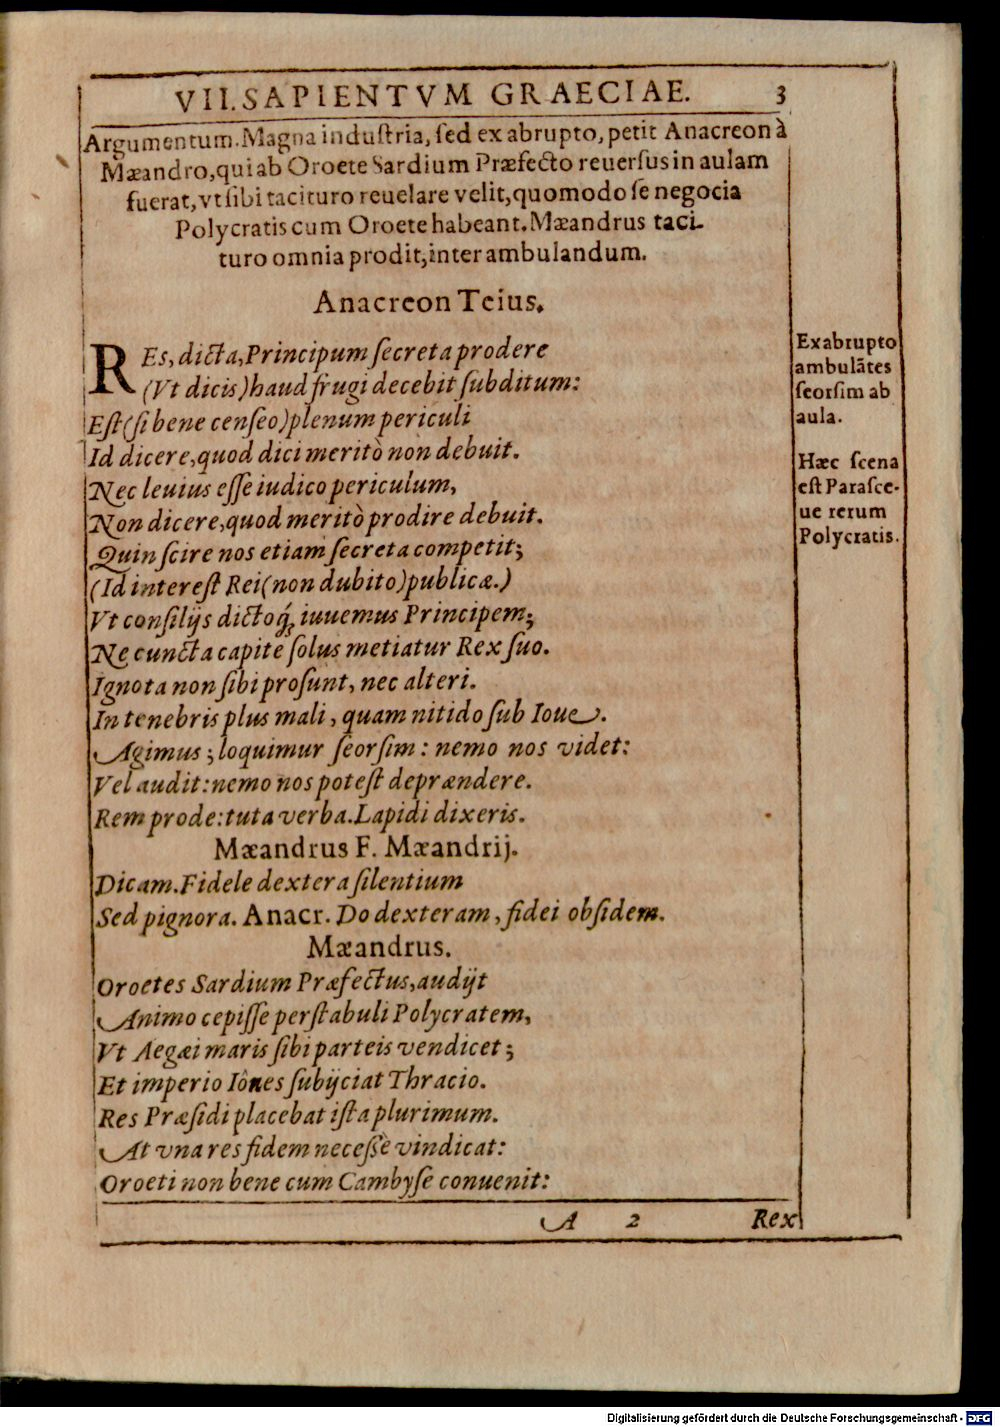 VII. SAPIENTVM GRAECIAE. 3
Argumentum. Magna induſtria, ſed ex abrupto, petit Anacreon à
Mæandro, qui ab Oroete Sardium Præfecto reuerſus in aulam
fuerat, vt ſibi tacituro reuelare velit, quomodo ſe negocia
Polycratis cum Oroete habeant. Mæandrus taci-
turo omnia prodit, inter ambulandum.
Anacreon Teius.
REs, dicta, Principum ſecreta prodere
(Vt dicis) haud frugi decebit ſubditum:
Eſt (ſi bene cenſeo) plenum periculi
Id dicere, quod dici meritò non debuit.
Nec leuius eſſe iudico periculum,
Non dicere, quod meritò prodire debuit.
Quin ſcire nos etiam ſecreta competit;
(Id intereſt Rei (non dubito) publicæ.)
Vt conſilijs dictoq́; iuuemus Principem;
Ne cuncta capite ſolus metiatur Rex ſuo.
Ignota non ſibi proſunt, nec alteri.
In tenebris plus mali, quam nitido ſub Ioue.
Agimus; loquimur ſeorſim: nemo nos videt:
Vel audit: nemo nos poteſt deprændere.
Rem prode: tuta verba. Lapidi dixeris.
Mæandrus F. Mæandrij.
Dicam. Fidele dextera ſilentium
Sed pignora. Anacr. Do dexteram, fidei obſidem.
Mæandrus.
Oroetes Sardium Præfectus, audijt
Animo cepiſſe perſtabuli Polycratem,
Vt Aegæi maris ſibi parteis vendicet;
Et imperio Iônes ſubijciat Thracio.
Res Præſidi placebat iſta plurimum.
At vna res fidem neceſſè vindicat:
Oroeti non bene cum Cambyſe conuenit:
A 2 Rex
Ex abrupto
ambulãtes
ſeorſim ab
aula.
Hæc ſcena
eſt Paraſce-
ue rerum
Polycratis.
Digitalisierung gefördert durch die Deutsche Forschungsgemeinschaft - DFG